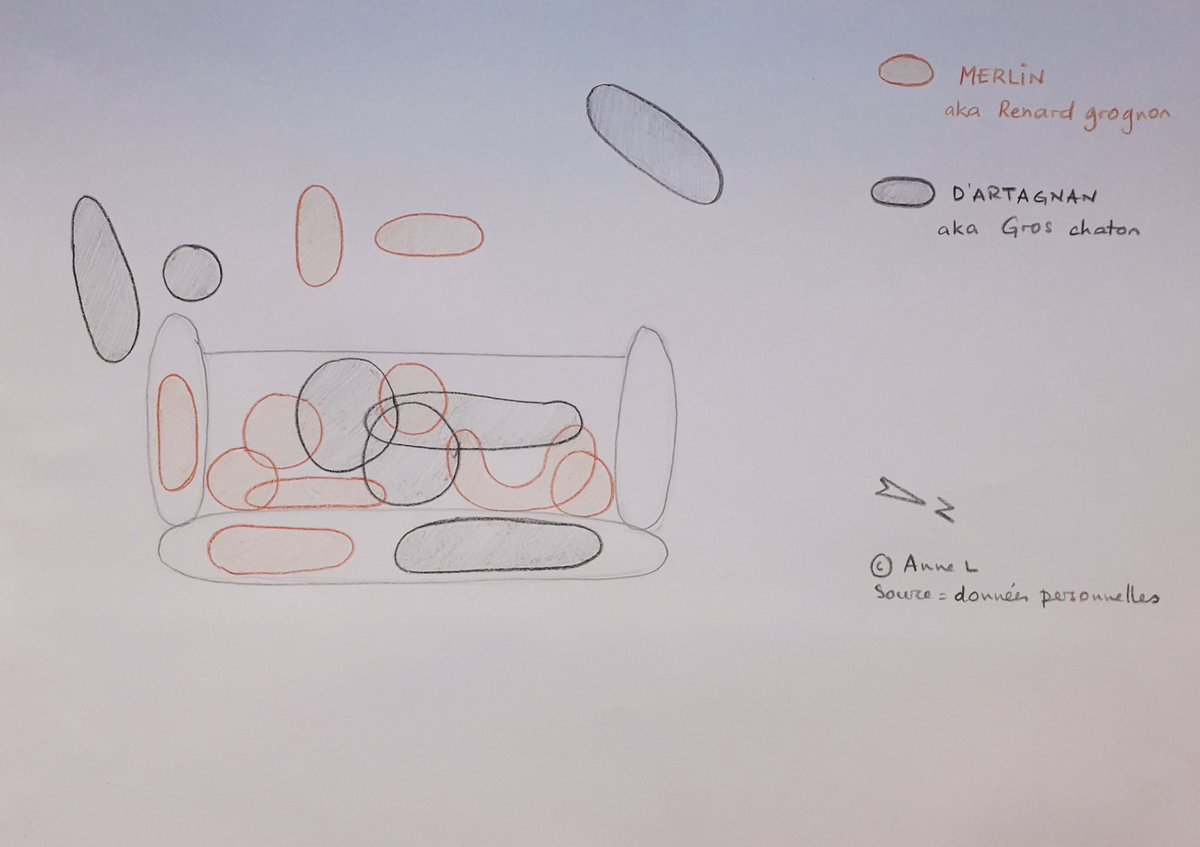 MERLiN
aka Renard grognon
D'ARTAGNAN
aka Gros chaton
N
© Anne L
Source = données personnelles